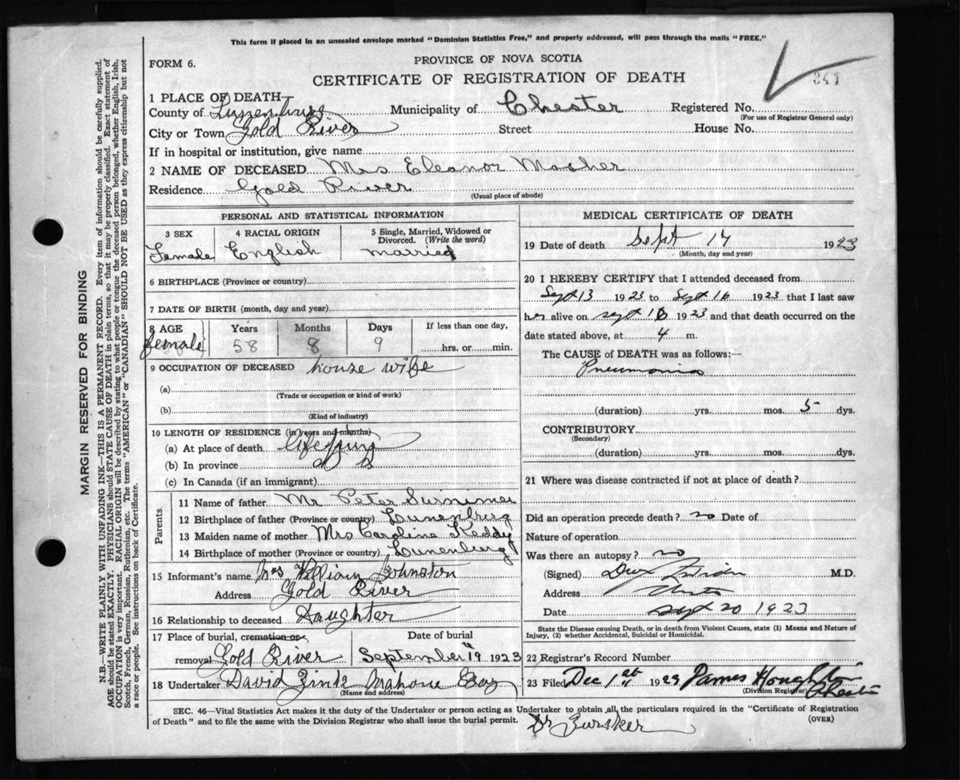 This form if placed in an unsealed envelope marked "Dominion Statistics Free," and properly addressed, will pass through the mails "FREE."
FORM 6.
PROVINCE OF NOVA SCOTIA
CERTIFICATE OF REGISTRATION OF DEATH
341
1 PLACE OF DEATH
County of Lunenburg Municipality of Chester Registered No.
(For use of Registrar General only)
City or Town Gold River Street House No.
If in hospital or institution, give name
2 NAME OF DECEASED Mrs Eleanor Mosher
Residence Gold River
(Usual place of abode)
PERSONAL AND STATISTICAL INFORMATION
3 SEX 4 RACIAL ORIGIN 5 Single, Married, Widowed or Divorced. (Write the word)
Female English married
6 BIRTHPLACE (Province or country)
7 DATE OF BIRTH (month, day and year)
8 AGE Years Months Days If less than one day,
female 58 8 9 hrs. or min.
9 OCCUPATION OF DECEASED house wife
(a)
(Trade or occupation or kind of work)
(b)
(Kind of industry)
10 LENGTH OF RESIDENCE (in years and months)
(a) At place of death
(b) In province
(c) In Canada (if an immigrant)
Parents
11 Name of father Mr Peter
12 Birthplace of father (Province or country) Lounenburg
13 Maiden name of mother Mrs Caroline Keddy
14 Birthplace of mother (Province or country) Lounenburg
15 Informant's name Mrs William Johnston
Address Gold River
16 Relationship to deceased Daughter
17 Place of burial, cremation or Date of burial
removal Gold River September 19 1923
18 Undertaker David Zink Mahone Bay
(Name and address)
MEDICAL CERTIFICATE OF DEATH
19 Date of death Sept 17 1923
(Month, day and year)
20 I HEREBY CERTIFY that I attended deceased from
Sept 13 1923 to Sept 16 1923 that I last saw
her alive on Sept 16 1923 and that death occurred on the
date stated above, at 4 m.
The CAUSE of DEATH was as follows:—
Pneumonia
(duration) yrs. mos. 5 dys.
CONTRIBUTORY
(Secondary)
(duration) yrs. mos. dys.
21 Where was disease contracted if not at place of death?
Did an operation precede death? no Date of
Nature of operation
Was there an autopsy? no
(Signed) M.D.
Address
Date Sept 20 1923
State the Disease causing Death, or in Death from Violent Causes, state (1) Means and Nature of Injury, (2) whether Accidental, Suicidal or Homicidal.
22 Registrar's Record Number
23 Filed Dec 1st 1923 James Houghton
(Division Registrar)
Chester
SEC. 46—Vital Statistics Act makes it the duty of the Undertaker or person acting as Undertaker to obtain all the particulars required in the "Certificate of Registration
of Death" and to file the same with the Division Registrar who shall issue the burial permit.
(OVER)
Dr Zwicker
MARGIN RESERVED FOR BINDING
N.B.—WRITE PLAINLY WITH UNFADING INK—THIS IS A PERMANENT RECORD. Every item of information should be carefully supplied.
AGE should be stated EXACTLY. PHYSICIANS should STATE CAUSE OF DEATH in plain terms, so that it may be properly classified. Exact statement of
OCCUPATION is very important. RACIAL ORIGIN will be described by stating to what people or tongue the deceased person belonged, whether English, Irish,
Scotch, French, German, Russian, Ruthenian, etc. The terms "AMERICAN" or "CANADIAN" SHOULD NOT BE USED as they express citizenship but not
a race or people. See instructions on back of Certificate.